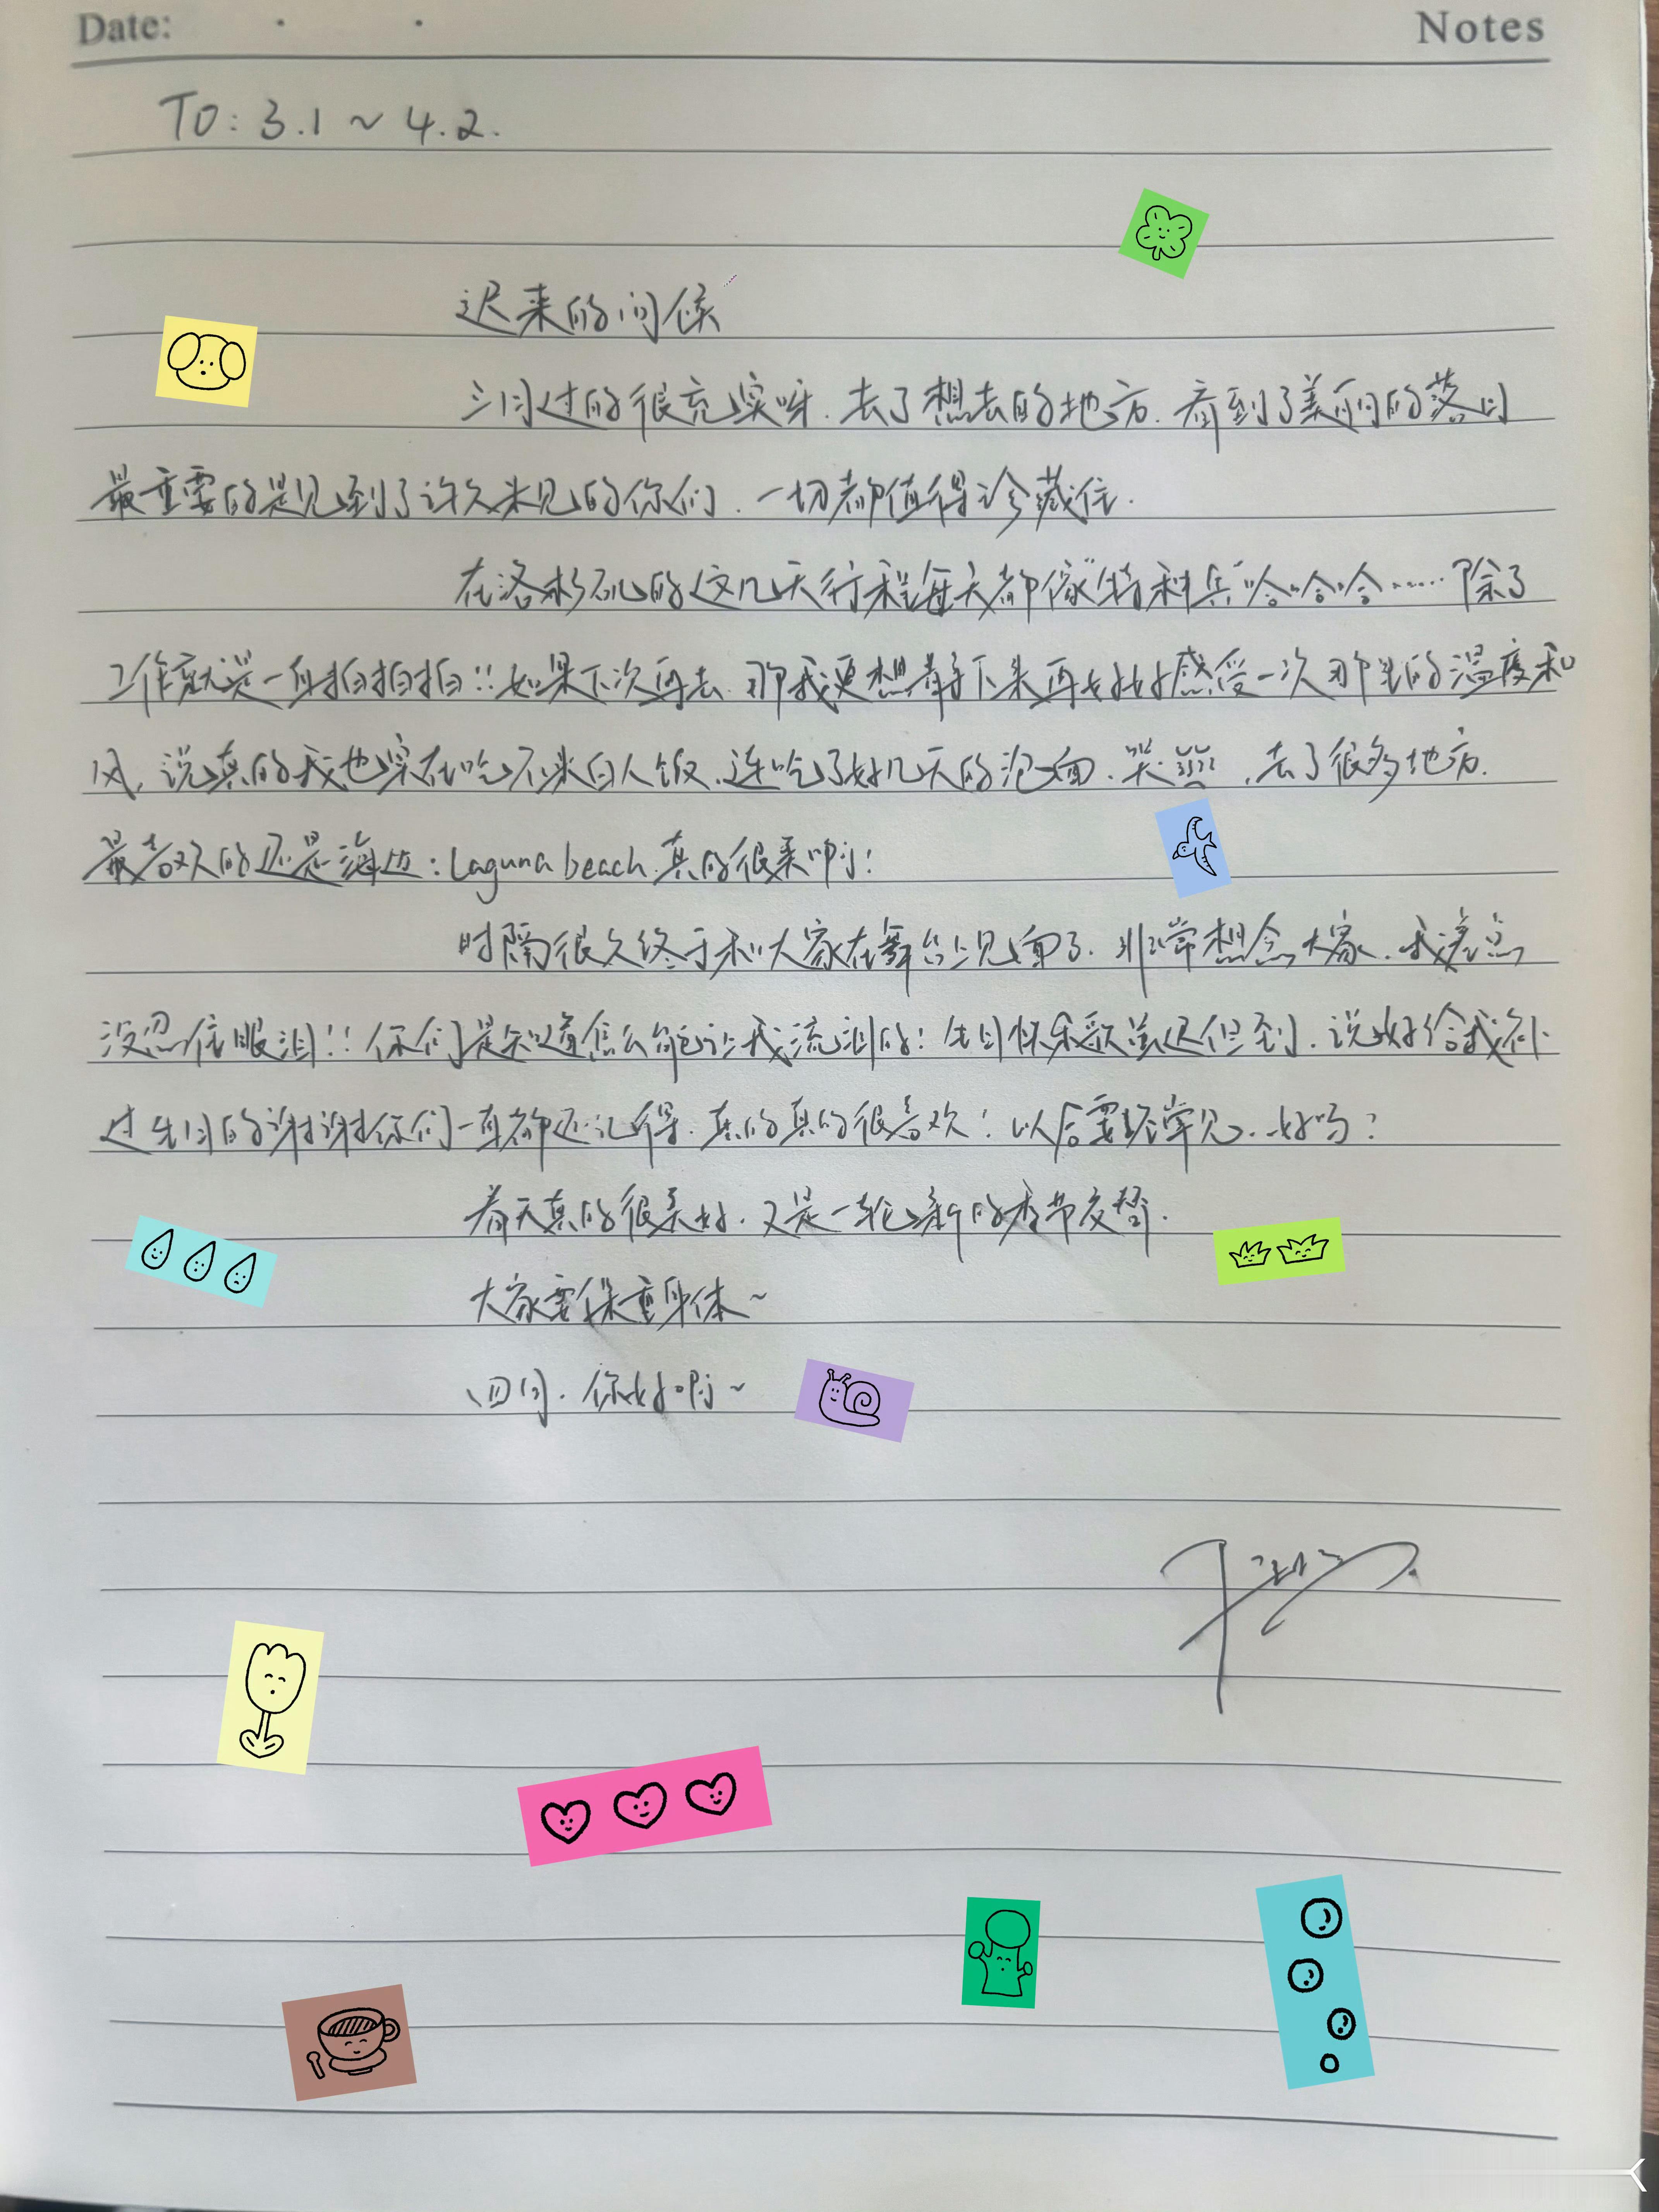 Date:
Notes
TO: 3.1 ~ 4.2.
迟来的问候
三月过的很充实呀.去了想去的地方.看到了美丽的落日
最重要的是见到了许久未见的你们.一切都值得珍藏住.
在洛杉矶的这几天行程每天都像"特种兵"哈哈哈……除了
工作就是一直拍拍拍!!如果下次再去.那我更想静下来再好好感受一次那里的温度和
风,说真的我也实在吃不来白人饭.连吃了好几天的泡面.哭 .去了很多地方.
最喜欢的还是海边:Laguna beach.真的很美啊!
时隔很久终于和大家在舞台上见面了.非常想念大家.我差点
没忍住眼泪!!你们是知道怎么能让我流泪的!生日快乐歌虽迟但到.说好给我补
过生日的谢谢你们一直都还记得.真的真的很喜欢!以后要经常见.好吗?
春天真的很美好.又是一轮新的季节交替.
大家要保重身体~
四月.你好啊~